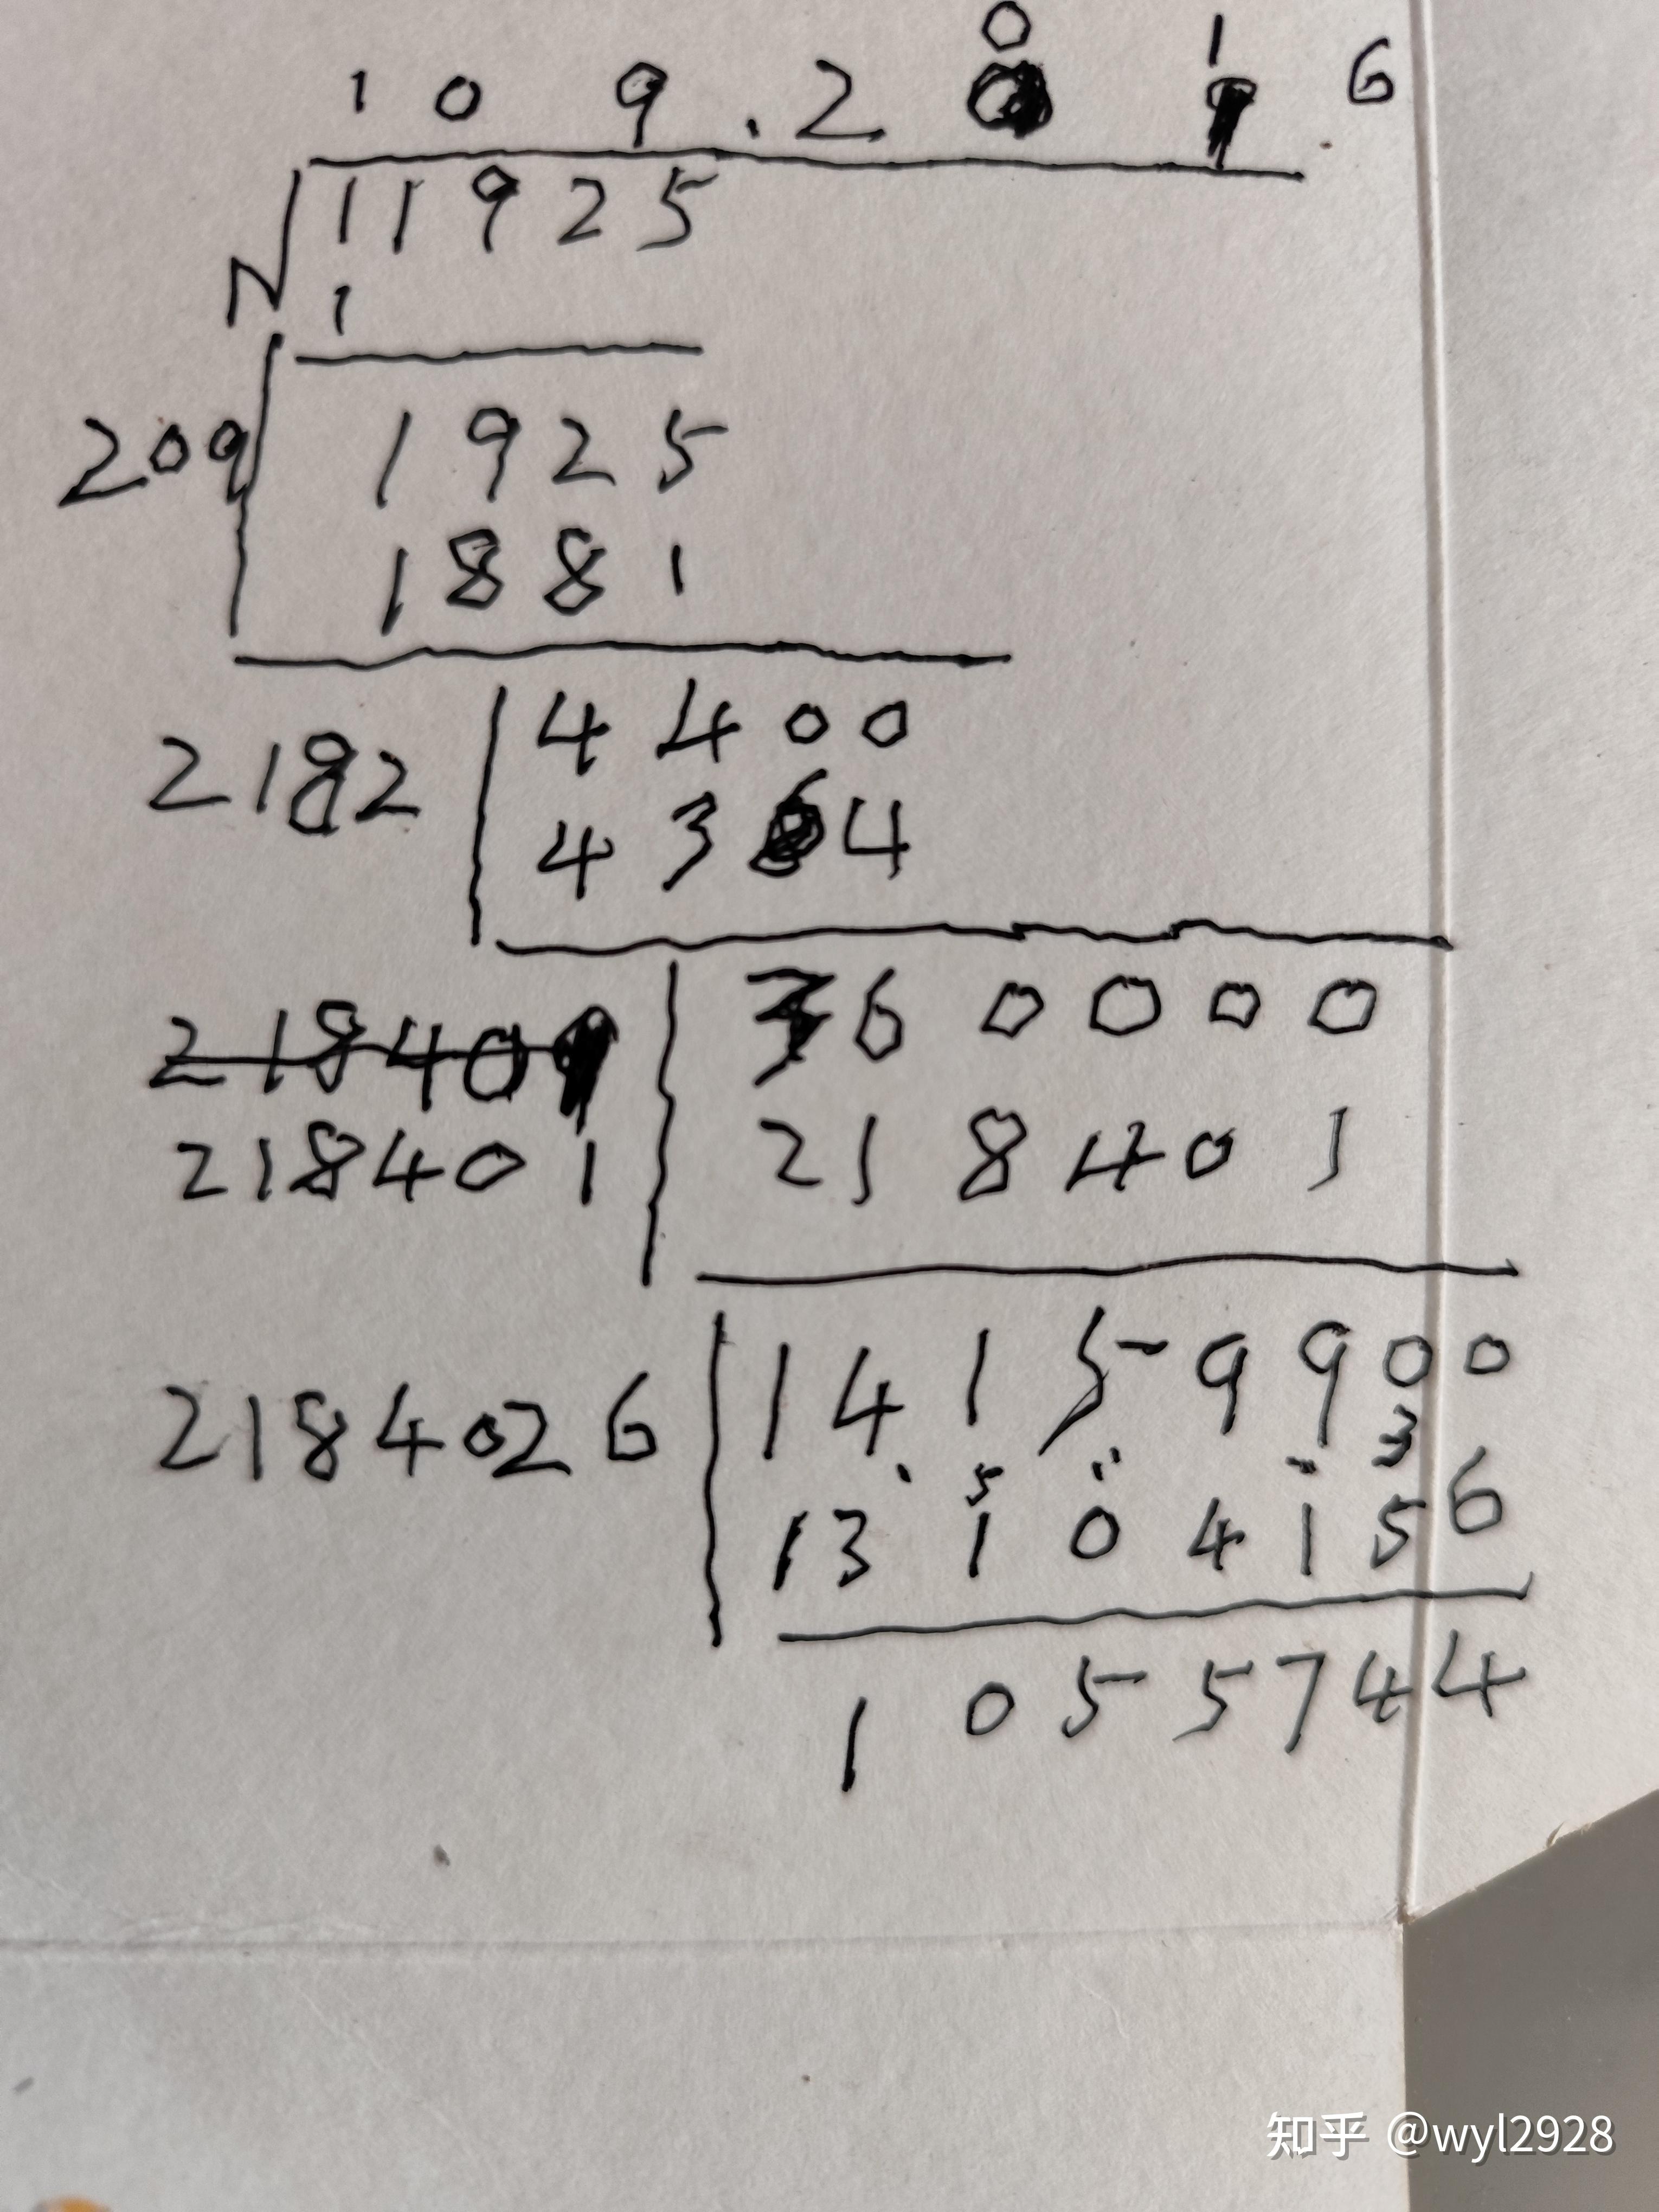 0 1
1 0 9 . 2 . 6
√11925
1
209 1925
1881
2182 4400
4364
218401 360000
218401 218401
2184026 14159900
5 3
13104156
1055744
知乎 @wyl2928